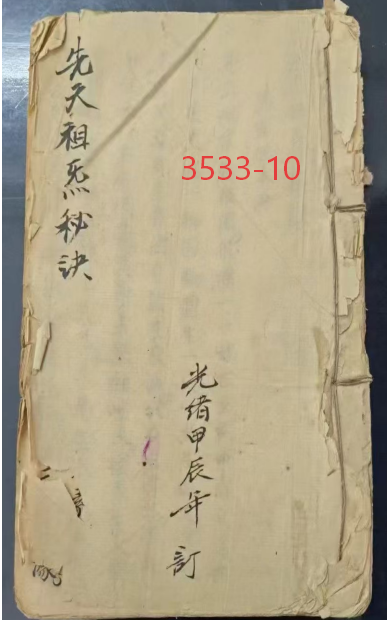 先天祖炁秘诀
3533-10
光绪甲辰年 訂